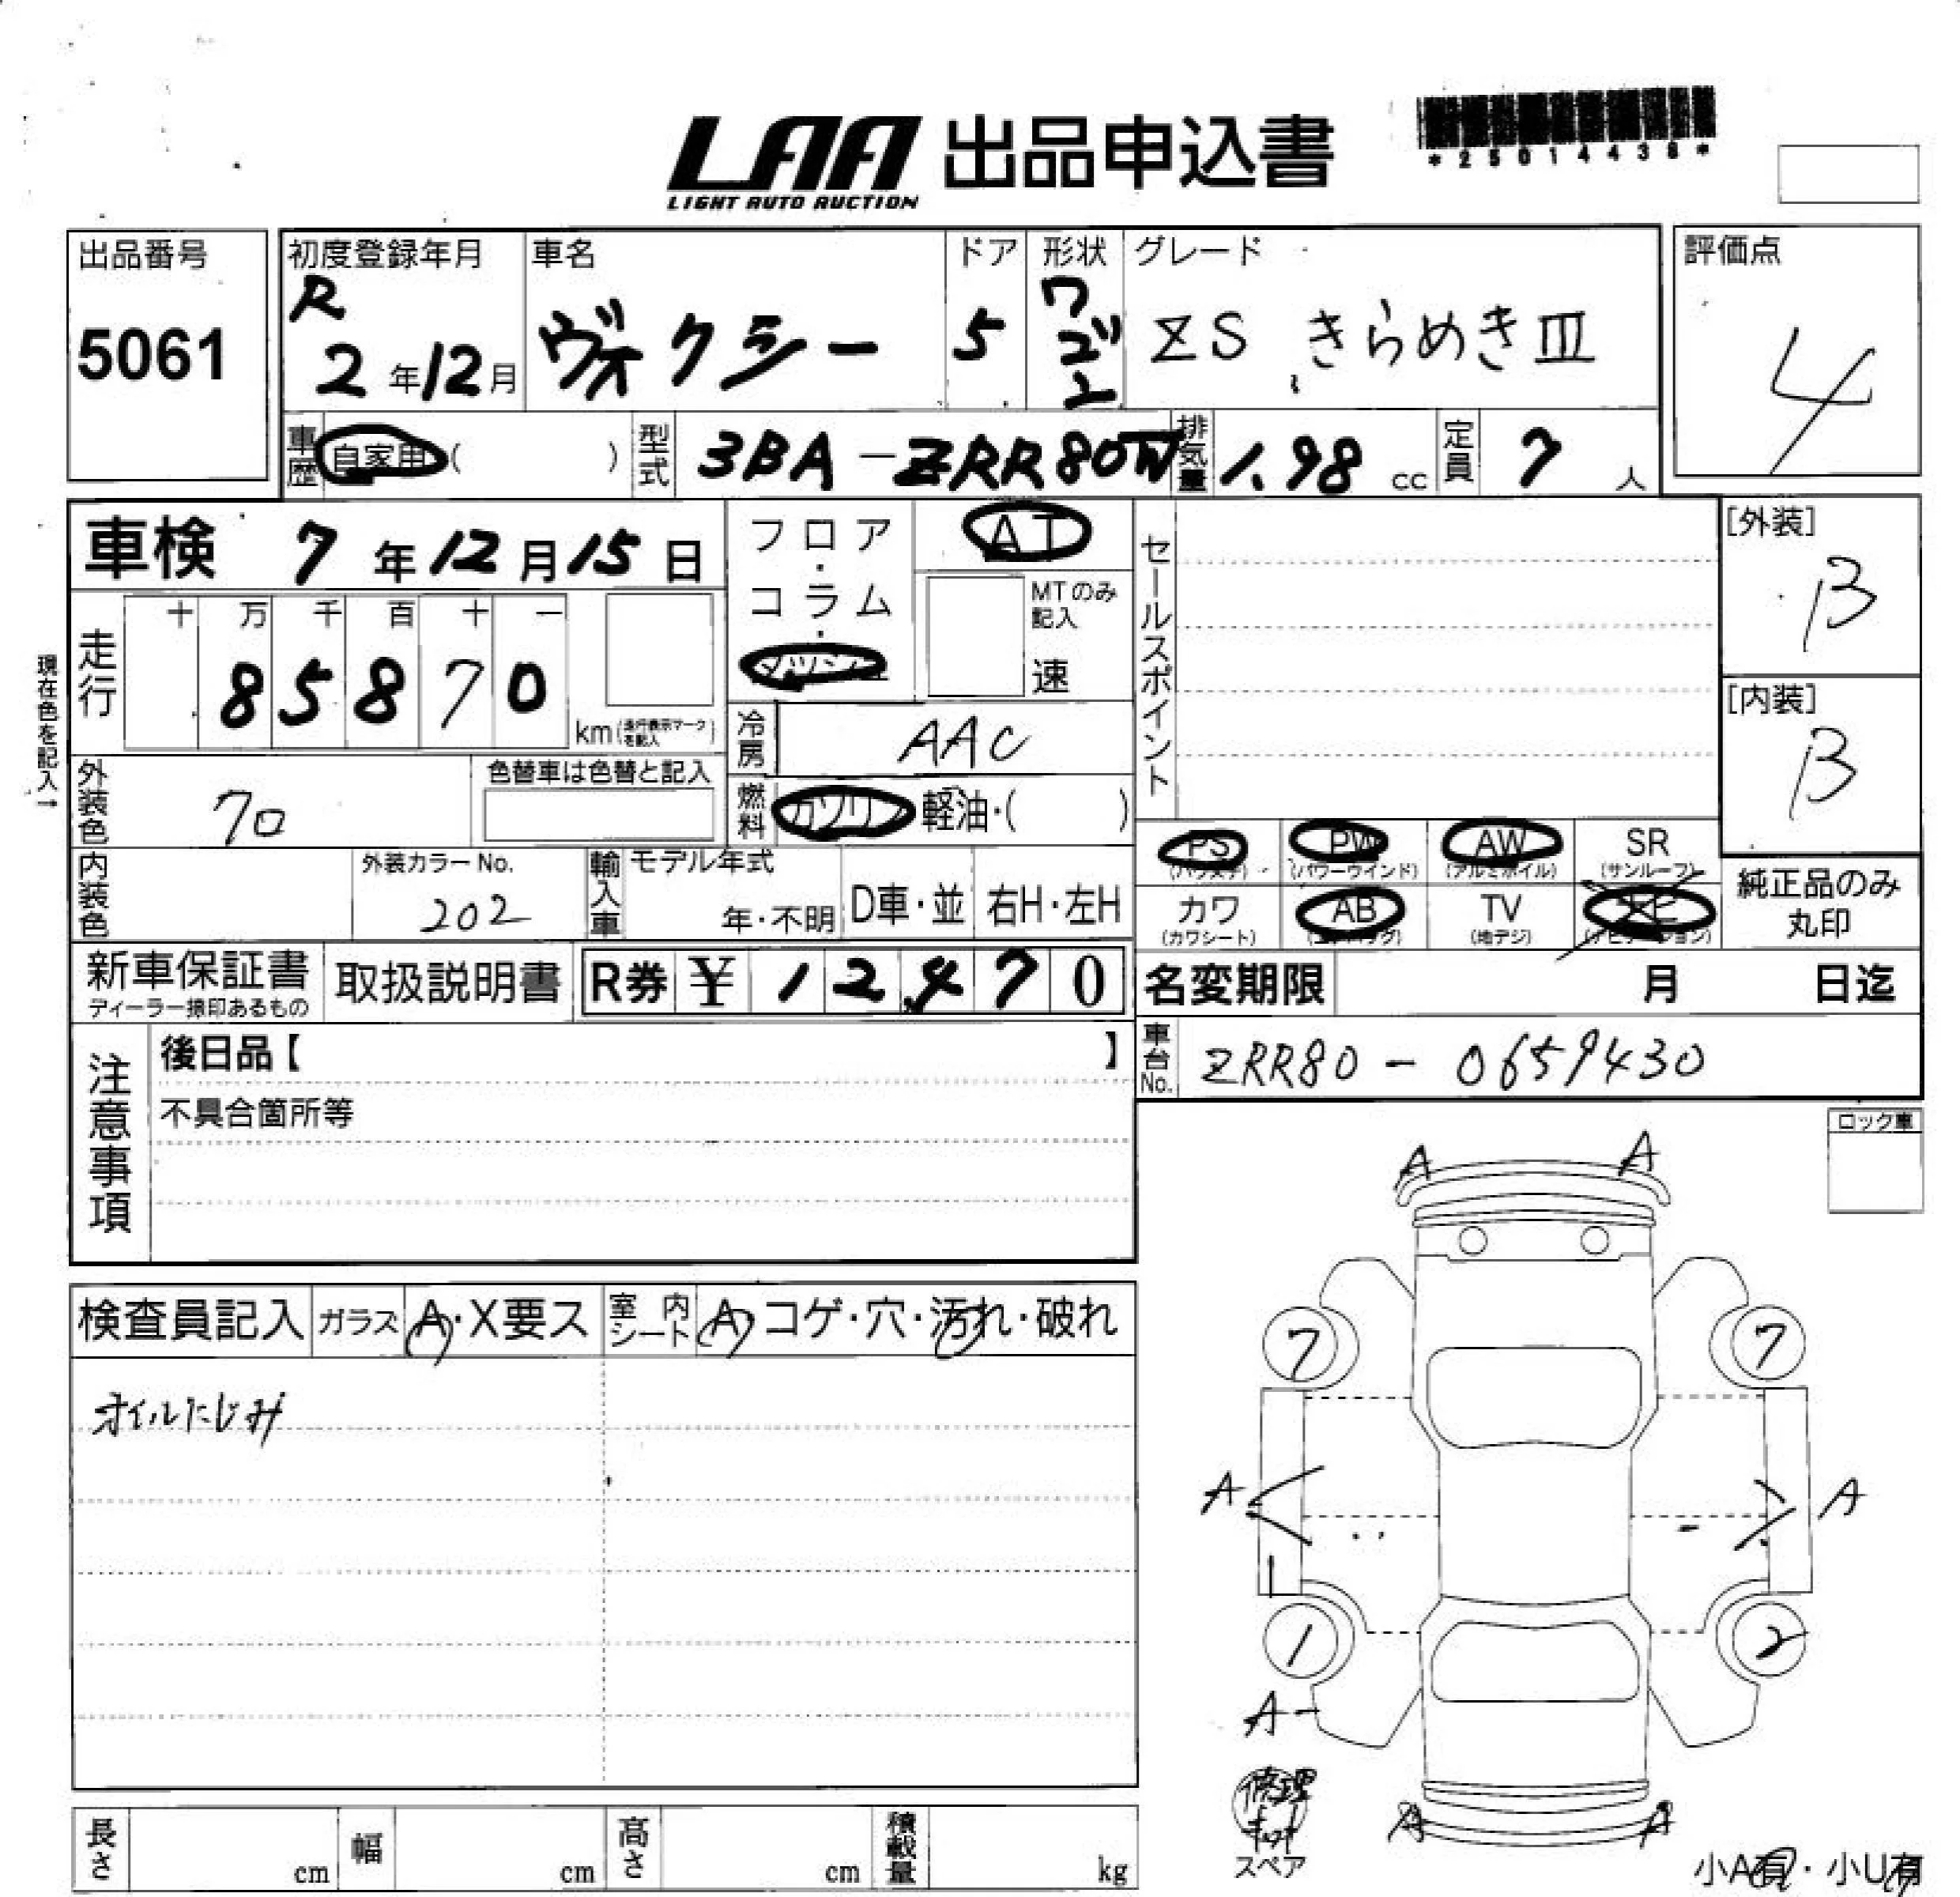 LAA 出品申込書
LIGHT AUTO AUCTION
*25014436*
出品番号
5061
初度登録年月
R
2年12月
車名
ヴォクシー
ドア
5
形状
ワゴン
グレード
ZS きらめきⅢ
評価点
4
車歴
自家用 ( )
型式
3BA-ZRR80W
排気量
1.98 cc
定員
7 人
車検 7年12月15日
フロア・コラム・
AT
MTのみ記入
速
セールスポイント
[外装]
B
[内装]
B
現在色を記入→
走行
十 万 千 百 十 一
8 5 8 7 0
km (走行表示マークを記入)
冷房
AAC
外装色
70
色替車は色替と記入
燃料
ガソリン・軽油・( )
内装色
外装カラーNo.
202
輸入車
モデル年式
年・不明
D車・並
右H・左H
PS
(パワステ)
PW
(パワーウインド)
AW
(アルミホイル)
SR
(サンルーフ)
カワ
(カワシート)
AB
(エアバッグ)
TV
(地デジ)
(ナビゲーション)
純正品のみ
丸印
新車保証書
ディーラー捺印あるもの
取扱説明書
R券 ¥ 12,470
名変期限 月 日迄
車台No.
ZRR80-0659430
注意事項
後日品【 】
不具合箇所等
ロック車
検査員記入
ガラス
A・X要ス
室内シート
A・コゲ・穴・汚れ・破れ
オイルにじみ
A A
7 7
A A
1 2
A
修理キット
スペア
A A
小A有・小U有
長さ cm
幅 cm
高さ cm
積載量 kg